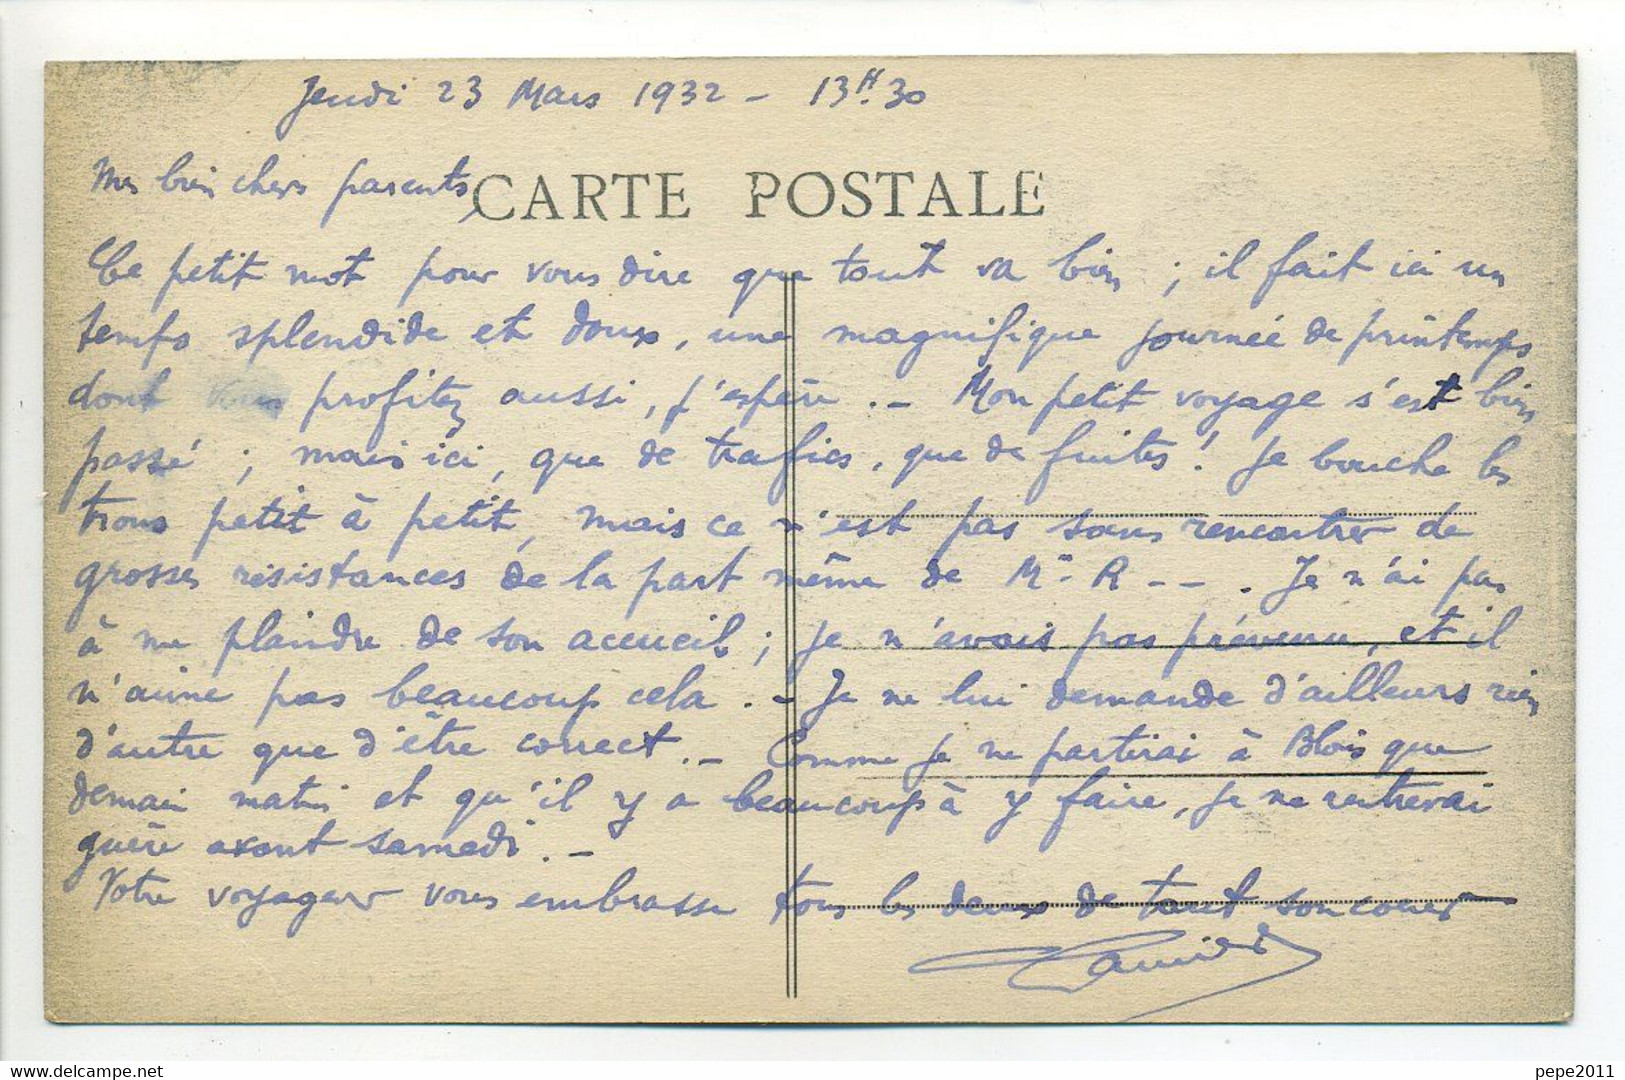 Jeudi 23 Mars 1932 - 13H.30
Mes bien chers parents,
CARTE POSTALE
Ce petit mot pour vous dire que tout va bien ; il fait ici un
temps splendide et doux, une magnifique journée de printemps
dont vous profitez aussi, j'espère. - Mon petit voyage s'est bien
passé ; mais ici, que de trafics, que de fuites ! Je bouche les
trous petit à petit, mais ce n'est pas sans rencontrer de
grosses résistances de la part même de Mr R - - . Je n'ai pas
à me plaindre de son accueil ; je n'avais pas prévenu, et il
n'aime pas beaucoup cela. - Je ne lui demande d'ailleurs rien
d'autre que d'être correct. - Comme je ne partirai à Blois que
demain matin et qu'il y a beaucoup à y faire, je ne rentrerai
guère avant samedi. -
Votre voyageur vous embrasse tous les deux de tout son coeur
pepe2011
www.delcampe.net